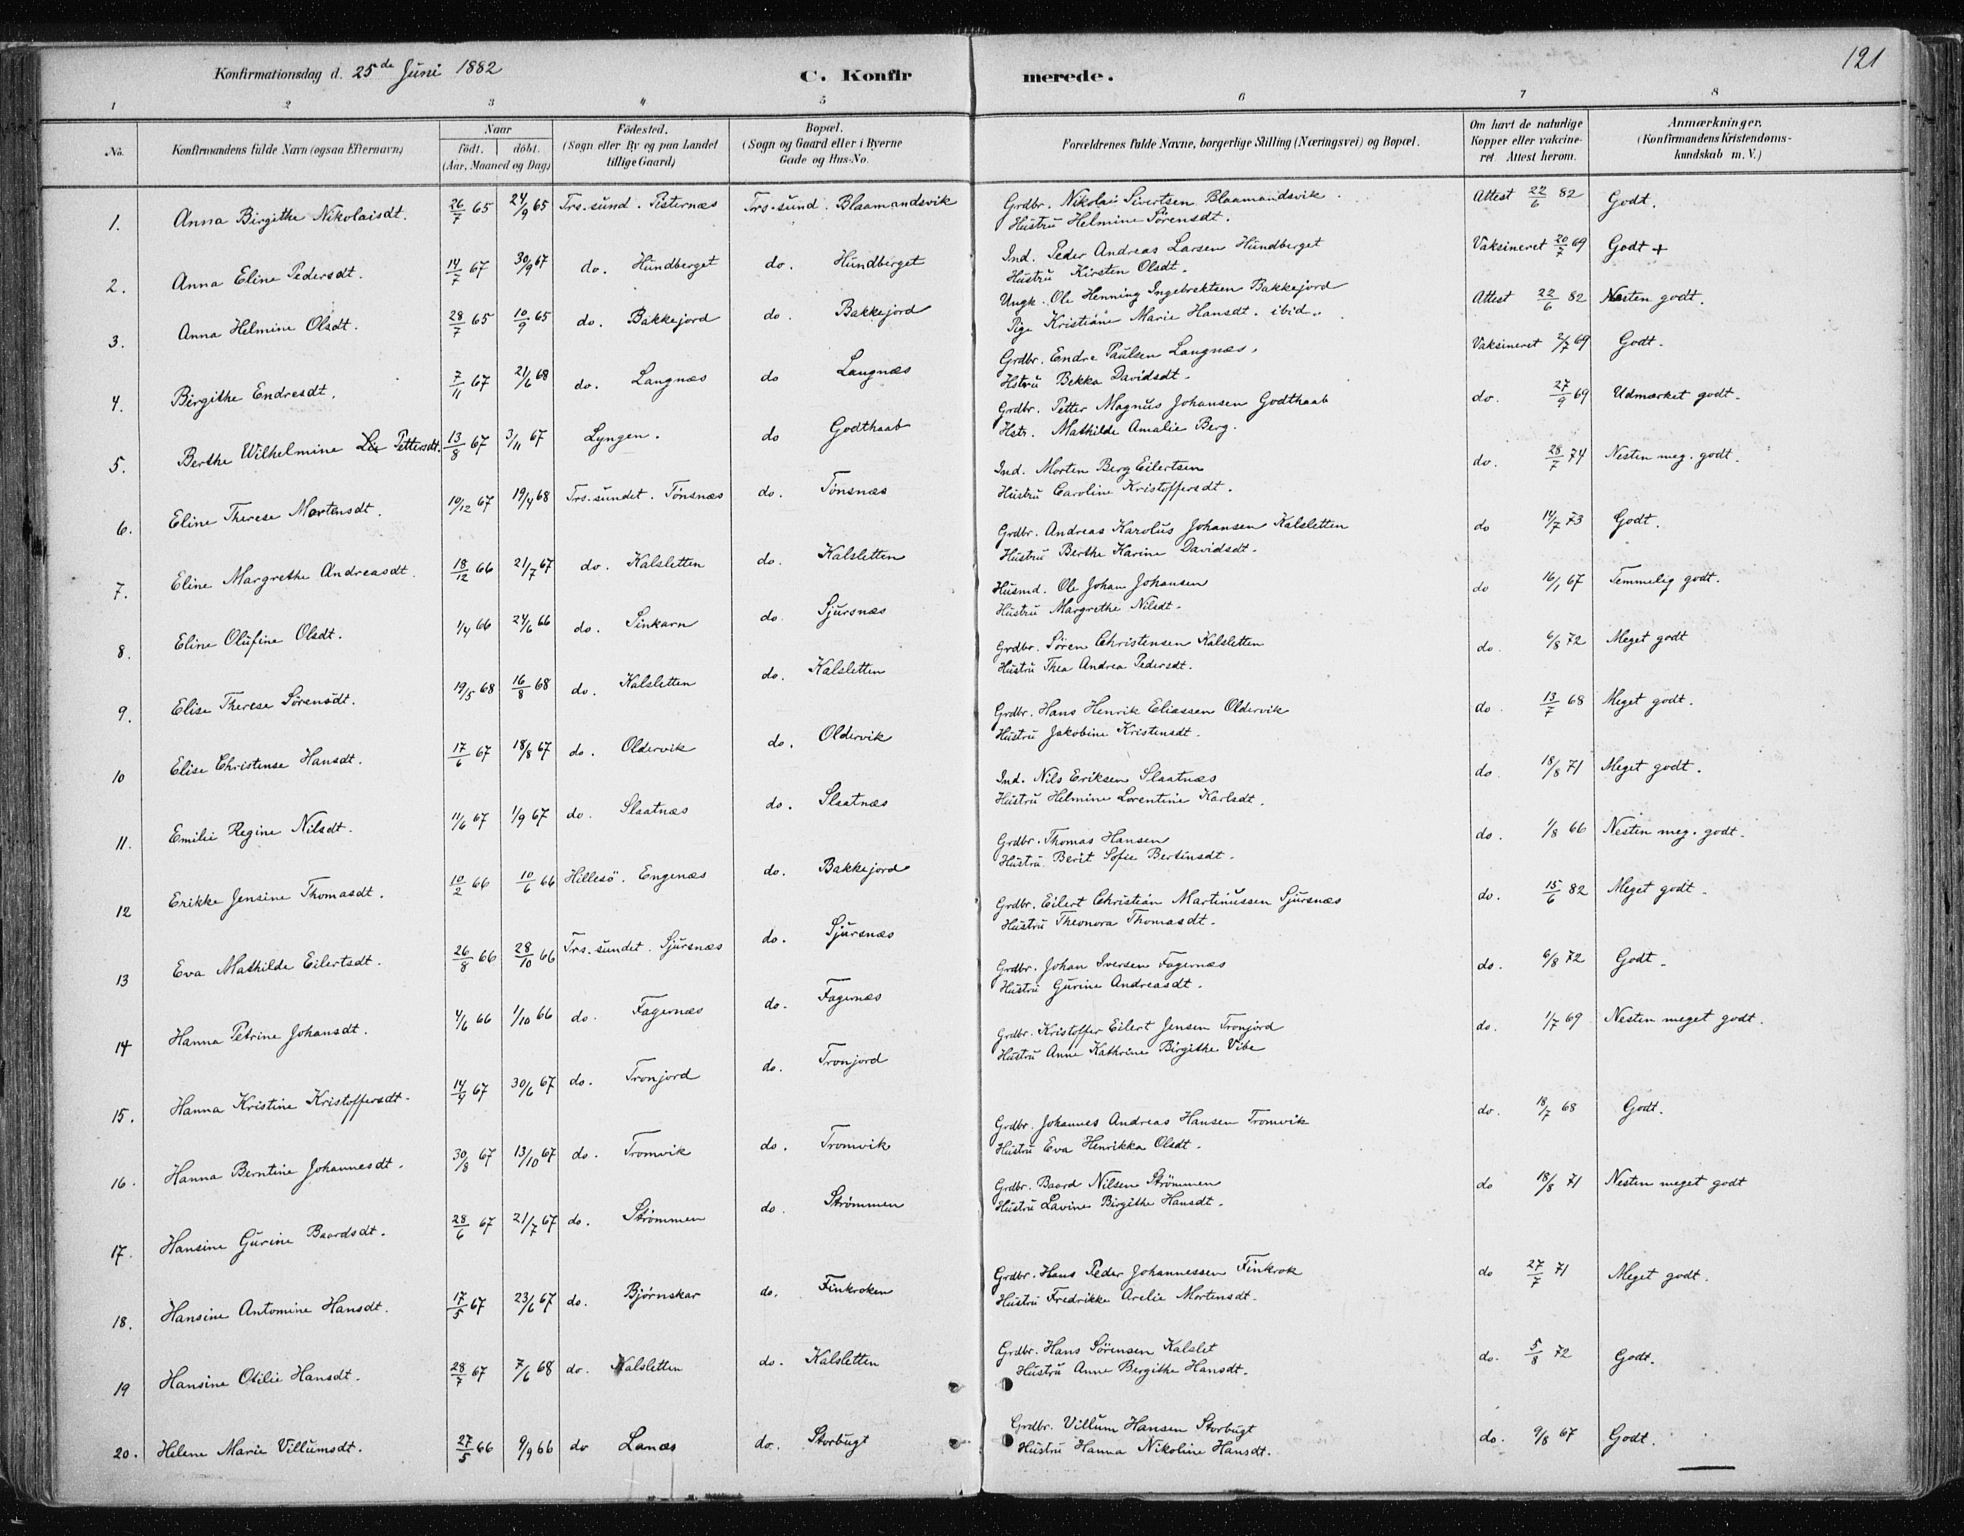 Konfirmationsdag d. 25de Juni 1882 C. Konfirmerede. 121
1 2 3 4 5 6 7 8
No. Konfirmandens fulde Navn (ogsaa Efternavn) Naar født. døbt. (Aar, Maaned og Dag) Fødested. (Sogn eller By og paa Landet tillige Gaard) Bopæl. (Sogn og Gaard eller i Byerne Gade og Hus-No. Forældrenes fulde Navne, borgerlige Stilling (Næringsvei) og Bopæl. Om havt de naturlige Kopper eller vakcineret. Attest herom. Anmærkninger. (Konfirmandens Kristendomskundskab m. V.)
1. Anna Birgithe Nikolaisdt. 26/7 65 24/9 65 Trs. sund. Pisternæs Trs. sund. Blaamandsvik Grdbr. Nikolai Sivertsen Blaamandsvik. Attest 22/6 82 Godt.
Hustru Helmine Sörensdt.
2. Anna Eline Pedersdt. 14/7 67 30/9 67 do. Hundberget do. Hundberget Ind. Peder Andreas Larsen Hundberget Vaksineret 20/7 69 Godt +
Hustru Kirsten Olsdt.
3. Anna Helmine Olsdt. 28/7 65 10/9 65 do. Bakkejord do. Bakkejord Ungk. Ole Henning Ingebrektsen Bakkejord Attest 22/6 82 Nesten godt.
Pige Kristiane Marie Hansdt. ibid.
4. Birgithe Endresdt. 7/11 67 21/6 68 do. Langnæs do Langnæs Grdbr. Endre Paulsen Langnæs. Vaksineret 2/7 69 Godt.
Hstru Bekka Davidsdt.
5. Berthe Wilhelmine Pettersdt. 13/8 67 3/11 67 Lyngen. do Godthaab Grdbr. Petter Magnus Johansen Godthaab do. 27/9 69 Udmærket godt.
Hstr. Mathilde Amalie Berg.
6. Eline Therese Mortensdt. 10/12 67 19/4 68 Trs. sundet. Tönsnæs do. Tönsnæs Ind. Morten Berg Eilertsen do. 28/7 74 Nesten meg. godt.
Hustru Caroline Kristoffersdt.
7. Eline Margrethe Andreasdt. 18/12 66 21/7 67 do. Kalsletten do. Kalsletten Grdbr. Andreas Karolus Johansen Kalsletten do 14/7 73 Godt.
Hustru Berthe Karine Davidsdt.
8. Eline Olufine Olsdt. 1/4 66 24/6 66 do. Sinkarn do. Sjursnæs Husmd. Ole Johan Johansen do 16/1 67 Temmelig godt.
Hustru Margrethe Nilsdt.
9. Elise Therese Sörensdt. 19/5 68 16/8 68 do. Kalsletten do. Kalsletten Grdbr. Sören Christensen Kalsletten do. 6/8 72 Meget godt
Hustru Thea Andrea Pedersdt.
10 Elise Christense Hansdt. 17/6 67 18/8 67 do. Oldervik do. Oldervik Grdbr. Hans Henrik Eliassen Oldervik do. 13/7 68 Meget godt.
Hustru Jakobine Kristensdt.
11. Emilie Regine Nilsdt. 11/6 67 1/9 67 do. Slaatnæs do. Slaatnæs Ind. Nils Eriksen Slaatnæs do. 18/8 71 Meget godt.
Hustru Helmine Lorentine Karlsdt.
12 Erikke Jensine Thomasdt. 10/2 66 10/6 66 Hillesö. Engenæs do. Bakkejord Grdbr. Thomas Hansen do. 1/8 66 Nesten meg. godt.
Hustru. Berit Sofie Bertinsdt.
13 Eva Mathilde Eilertsdt. 26/8 66 28/10 66 Trs. sundet. Sjursnæs do. Sjursnæs Grdbr. Eilert Christian Martinussen Sjursnæs do. 15/6 82 Meget godt.
Hustru Theonora Thomasdt.
14 Hanna Petrine Johansdt. 4/6 66 1/10 66 do. Fagernæs do. Fagernæs Grdbr. Johan Iversen Fagernæs do. 6/8 72 Godt.
Hustru Gurine Andreasdt.
15. Hanna Kristine Kristoffersdt. 14/9 67 30/6 67 do. Tronjord do. Tronjord Grdbr. Kristoffer Eilert Jensen Tronjord do. 1/7 69 Nesten meget godt.
Hustru Anne Kathrine Birgithe Vibe
16. Hanna Berntine Johannesdt. 30/8 67 13/10 67 do. Tromvik do. Tromvik Grdbr. Johannes Andreas Hansen Tromvik do. 18/7 68 Godt.
Hustru Eva Henrikka Olsdt.
17. Hansine Gurine Baardsdt. 28/6 67 21/7 67 do. Strömmen do. Strömmen Grdbr. Baard Nilsen Strömmen do 18/8 71 Nesten meget godt
Hustru Lavine Birgithe Hansdt.
18. Hansine Antomine Hansdt. 17/5 67 23/6 67 do. Bjørnskar do. Finkroken Grdbr. Hans Peder Johannessen Finkrok do 27/7 71 Meget godt.
Hustru Fredrikke Arelie Mortensdt.
19 Hansine Otilie Hansdt. 28/7 67 7/6 68 do. Kalsletten do. Kalsletten Grdbr. Hans Sörensen Kalslet do. 5/8 72 Godt.
Hustru Anne Bergithe Hansdt.
20. Helene Marie Villumsdt. 27/5 66 9/9 66 do Lanæs do. Storbugt Grdbr. Villum Hansen Storbugt do. 9/8 67 Godt.
Hustru Hanna Nikoline Hansdt.